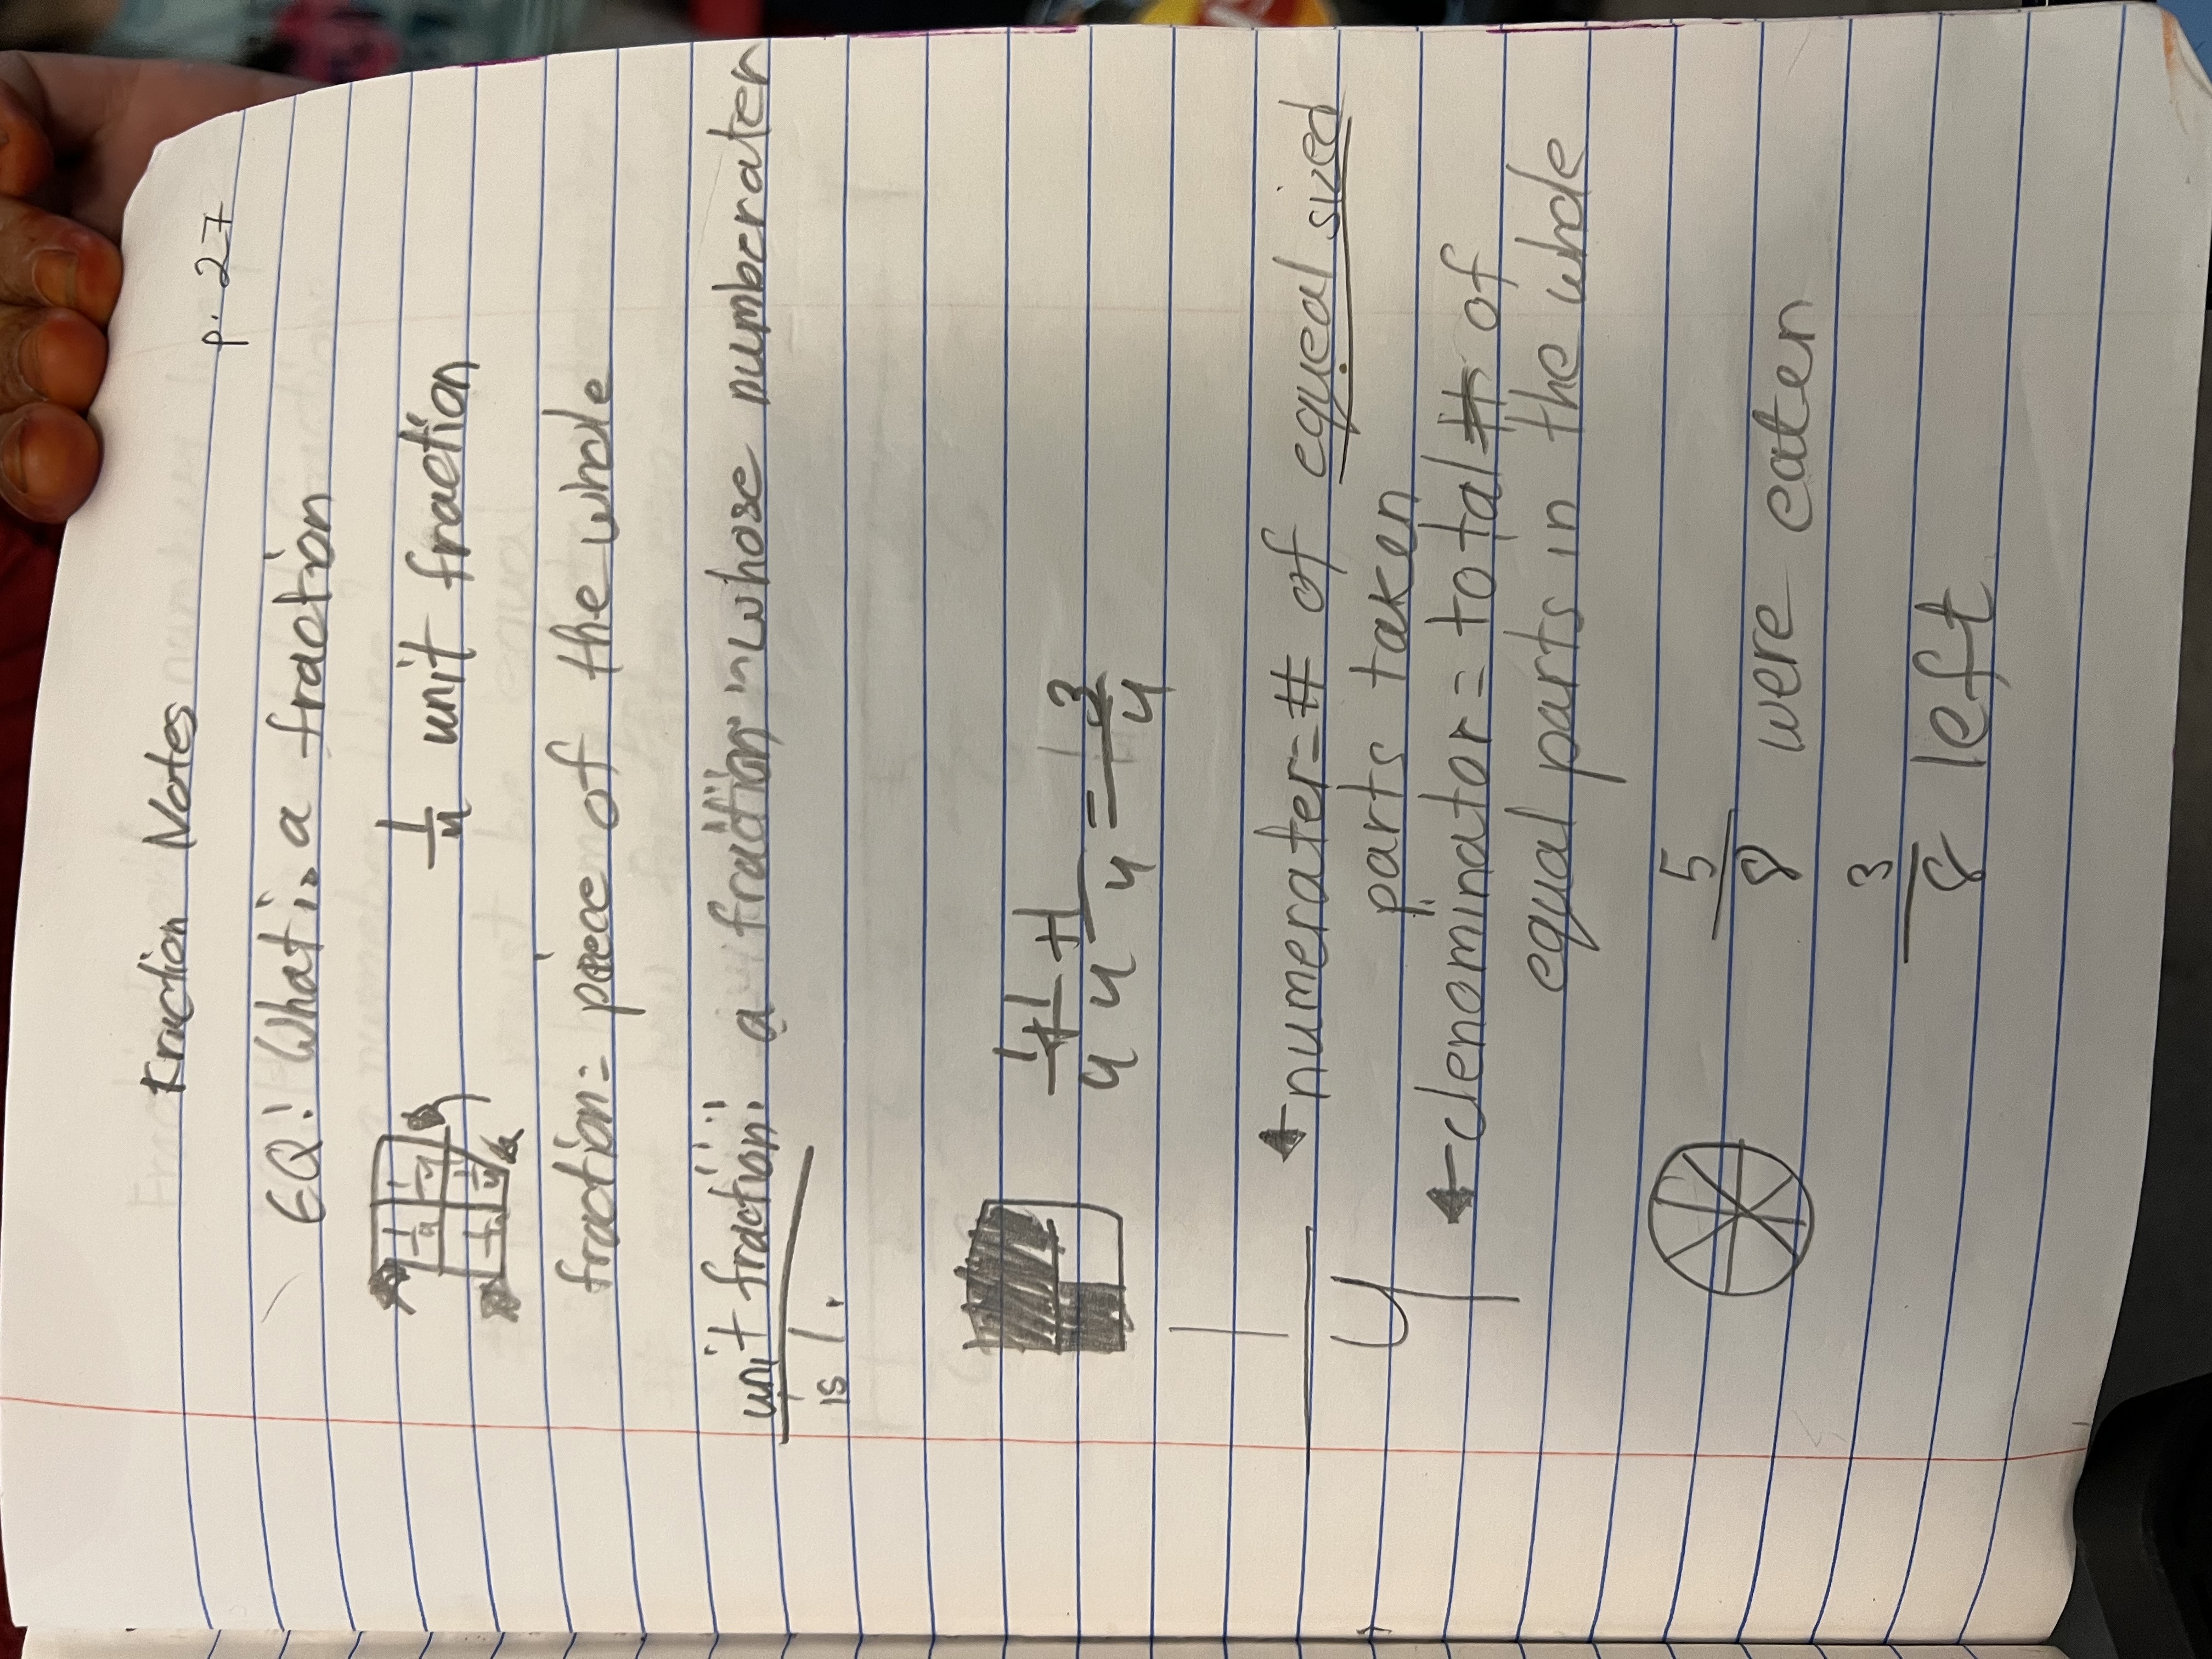 Fraction Notes
p. 27
EQ: What is a fraction
1/4 1/4
1/4 1/4
1/4 unit fraction
fraction = piece of the whole
unit fraction: a fraction whose numberater
is 1.
1/4 + 1/4 + 1/4 = 3/4
1/4
← numerater = # of equeal sized
parts taken
← denominator = total # of
equal parts in the whole
5/8 were eaten
3/8 left